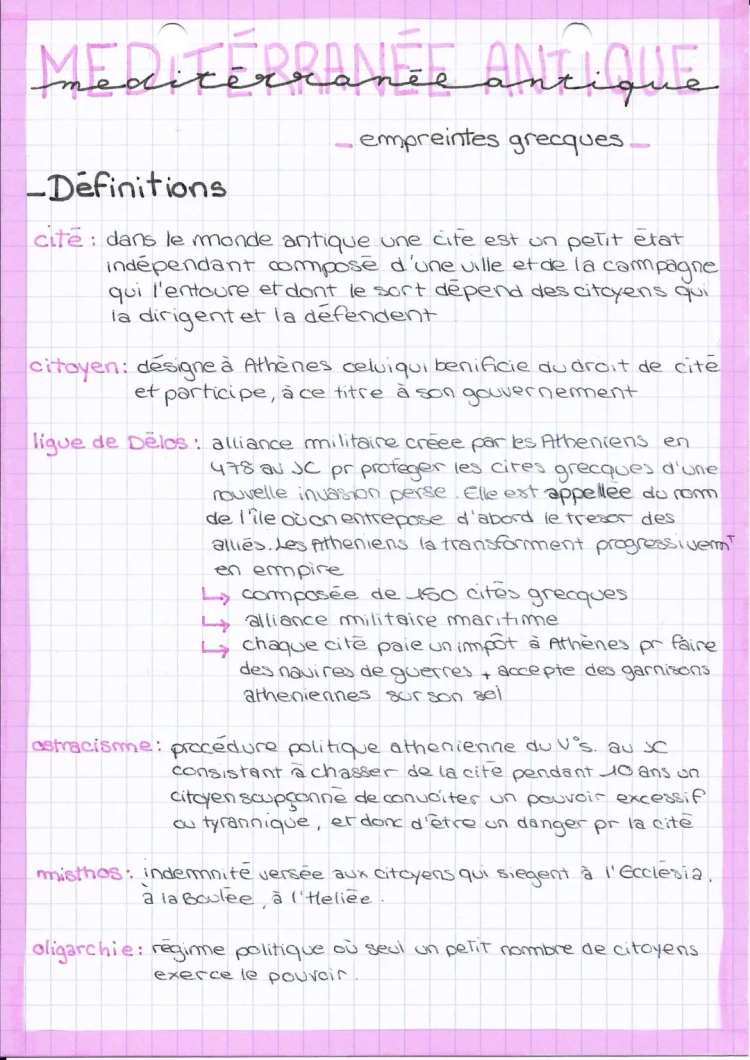 MEDITÉRRANÉE ANTIQUE
meditérranée antique
_ empreintes grecques _
_Définitions
cité : dans le monde antique une cité est un petit état
indépendant composé d'une ville et de la campagne
qui l'entoure et dont le sort dépend des citoyens qui
la dirigent et la défendent
citoyen: désigne à Athènes celui qui benificie du droit de cité
et participe, à ce titre à son gouvernement
ligue de Délos : alliance militaire créee par les Atheniens en
478 av JC pr proteger les cites grecques d'une
nouvelle invasion perse. Elle est appellée du nom
de l'île où on entrepose d'abord le tresor des
alliés. Les Atheniens la transforment progressivemt
en empire
↳ composée de 150 cités grecques
↳ alliance militaire maritime
↳ chaque cité paie un impôt à Athènes pr faire
des navires de guerres + accepte des garnisons
atheniennes sur son sol
ostracisme: procédure politique athenienne du V°s. av JC
consistant à chasser de la cité pendant 10 ans un
citoyen soupçonné de convoiter un pouvoir excessif
ou tyrannique, et donc d'être un danger pr la cité
misthos: indemnité versée aux citoyens qui siegent à l'Ecclésia,
à la Boulée, à l'Heliée.
oligarchie: régime politique où seul un petit nombre de citoyens
exerce le pouvoir.